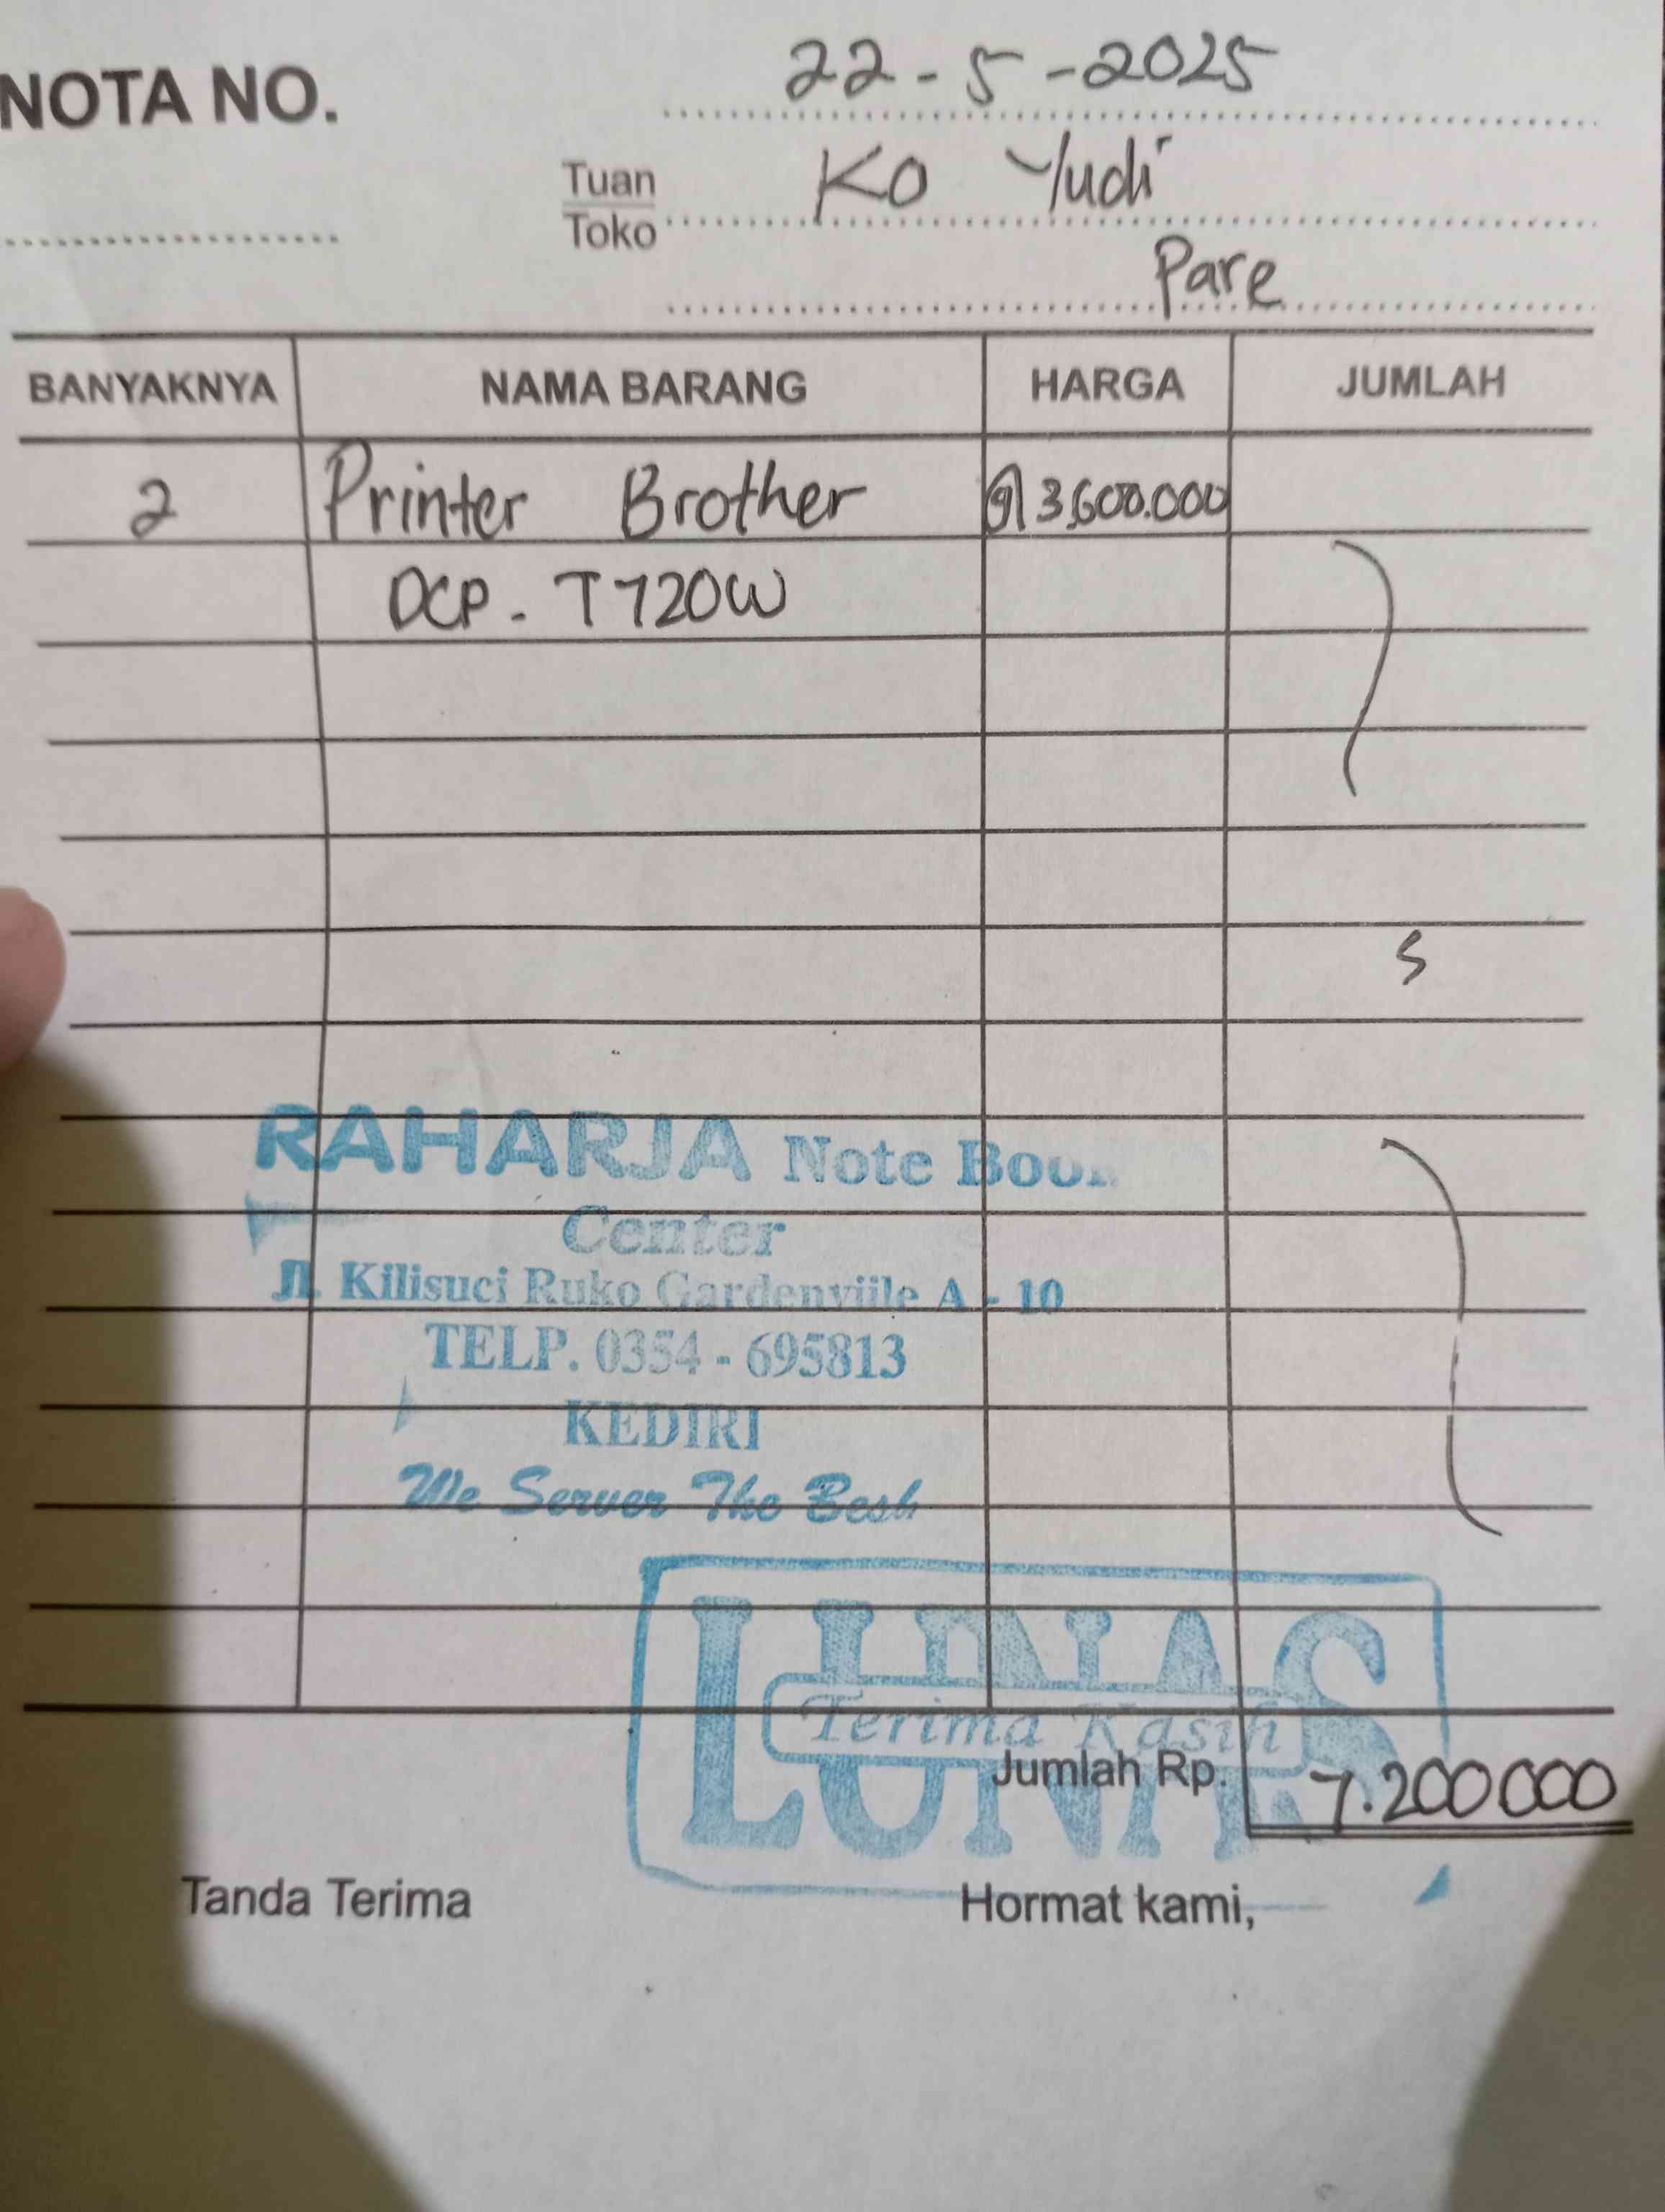 NOTA NO.
22-5-2025
Tuan
Toko
Ko Yudi
Pare
BANYAKNYA NAMA BARANG HARGA JUMLAH
2 Printer Brother @ 3.600.000
DCP - T720W
RAHARJA Note Book
Center
Jl. Kilisuci Ruko Gardenviile A - 10
TELP. 0354 - 695813
KEDIRI
We Server The Best
LUNAS
Terima Kasih
LUNAS
Jumlah Rp. 7.200000
Tanda Terima Hormat kami,